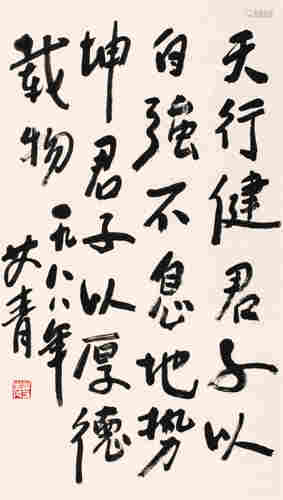 天行健君子以
自强不息地势
坤君子以厚德
载物
一九八八年
艾青